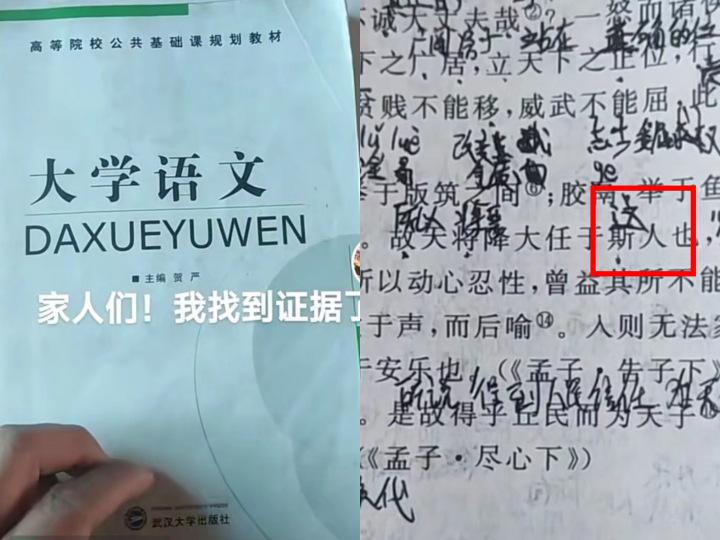 高等院校公共基础课规划教材
大学语文
DAXUEYUWEN
■ 主编 贺 严
家人们！我找到证据了
武汉大学出版社
诚大丈夫哉②？一怒而诸
站在 正确的位
下之广居，立天下之正位，行
贫贱不能移，威武不能屈，此
改变
举于版筑之间⑥；胶鬲 举于鱼
所以 将要 这
。故天将降大任于斯人也，
所以动心忍性，曾益其所不能
于声，而后喻⑭。入则无法家
于安乐也（《孟子·告子下》
得到人民信任
。是故得乎丘民而为天子
《孟子·尽心下》）
代